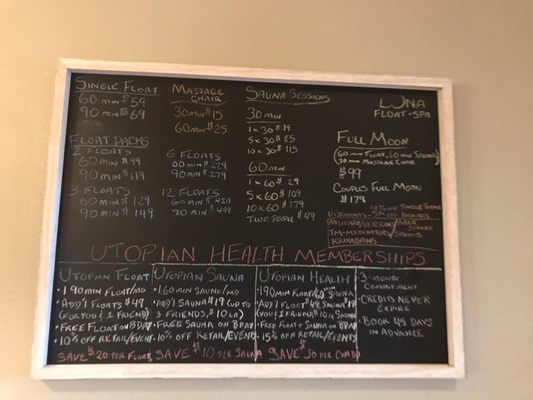 Single Float
60 min $59
90 min $69
Float Packs
2 Floats
60 min $99
90 min $119
3 Floats
60 min $129
90 min $149
Massage
Chair
30 min $15
60 min $25
6 Floats
60 min $229
90 min $279
12 Floats
60 min $420
90 min $499
Sauna Sessions
30 min
1 x 30 $19
5 x 30 $55
10 x 30 $115
60 min
1 x 60 $29
5 x 60 $109
10 x 60 $179
Two People $49
Luna
Float • Spa
Full Moon
(60 min Float, 60 min Sauna)
30 min Massage Chair
$99
Couples Full Moon
$179
10% off Single Items
Discounts - 5% off Packages
Military/
TM-Meditators/Students
Utopian Health Memberships
Utopian Float
• 1 90 min Float/mo
• Add'l Floats $49
(for you & 1 friend)
• Free Float on BDay
• 10% off Retail/Event
Save $20 per Float
Utopian Sauna
• 1 60 min Sauna/mo
• Add'l Sauna $19 (up to
3 friends, $10 ea)
• Free Sauna on BDay
• 10% off Retail/Events
Save $10 per Sauna
Utopian Health
• 1 90 min Float/60 min Sauna
• Add'l Float $49, Sauna $19
(you & 1 friend) $10 a Sauna
• Free Float & Sauna on BDay
• 15% off Retail/Events
Save $30 per Combo
• 3-month
commitment
• Credits never
expire
• Book 45 days
in advance